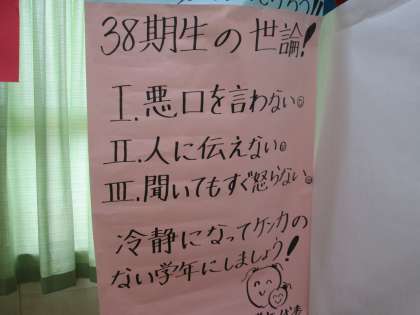 38期生の世論!
I.悪口を言わない。
II.人に伝えない。
III.聞いてもすぐ怒らない。
冷静になってケンカの
ない学年にしましょう!